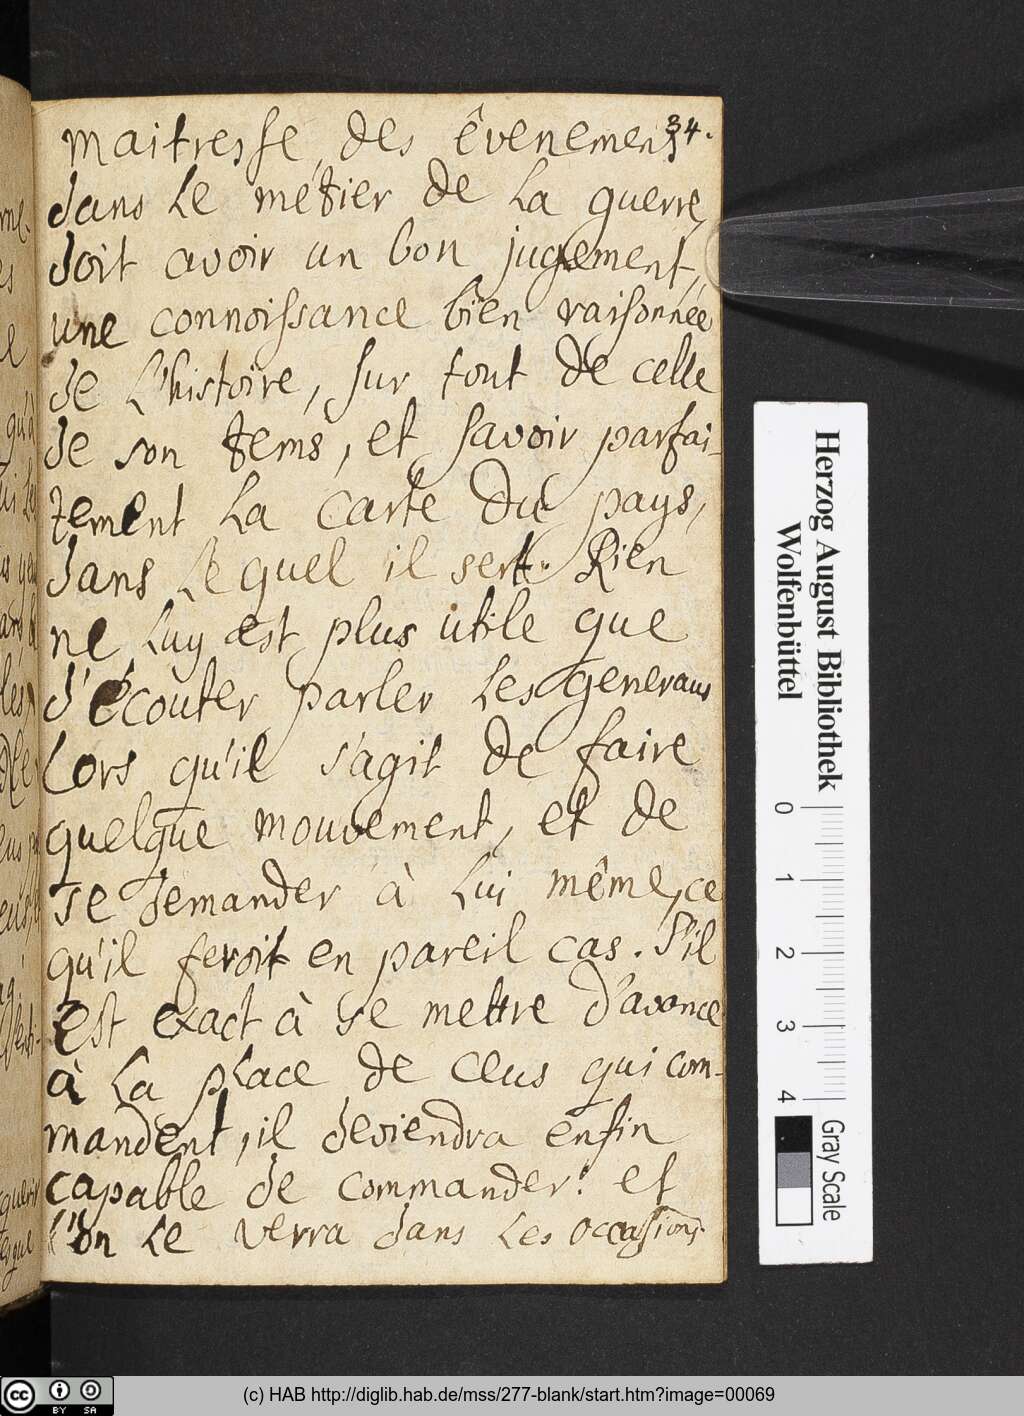 34.
maitresse des êvenemens
dans le métier de la guerre,
doit avoir un bon jugement,
une connoissance bien raisonnée
de l'histoire, sur tout de celle
de son tems, et savoir parfai-
tement la carte du pays,
dans lequel il sert. Rien
ne luy est plus utile que
d'écouter parler les generaus
lors qu'il s'agit de faire
quelque mouvement, et de
se demander à lui même, ce
qu'il feroit en pareil cas. S'il
est exact à se mettre d'avance
à la place de ceus qui com-
mandent, il deviendra enfin
capable de commander: et
l'on le verra dans les occasions
Herzog August Bibliothek
Wolfenbüttel
0 1 2 3 4
Gray Scale
cc BY SA
(c) HAB http://diglib.hab.de/mss/277-blank/start.htm?image=00069